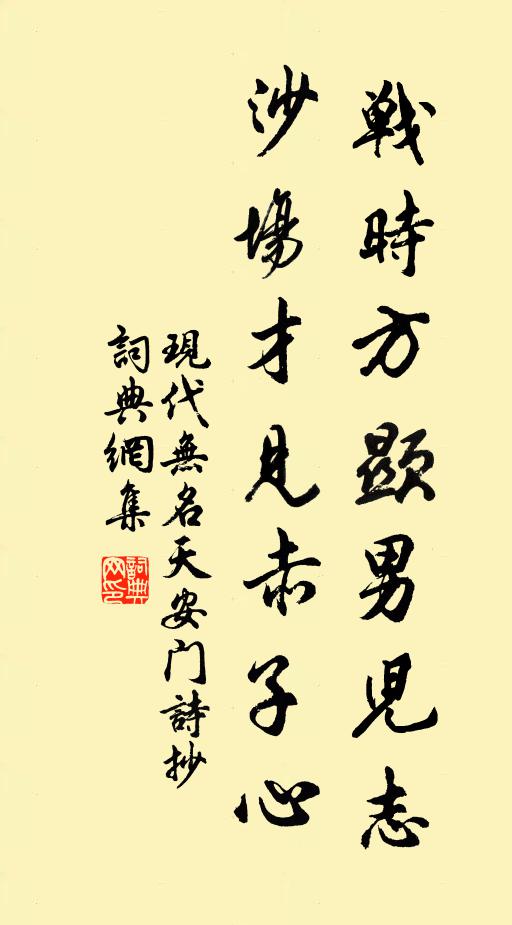 戦時方顕男児志
沙場才見赤子心
現代無名天安门詩抄
詞典網集
詞典
网印